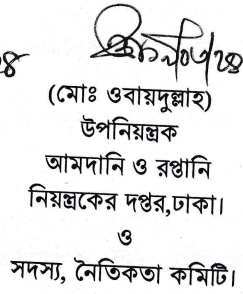 (মোঃ ওবায়দুল্লাহ)
উপনিয়ন্ত্রক
আমদানি ও রপ্তানি
নিয়ন্ত্রকের দপ্তর,ঢাকা।
ও
সদস্য, নৈতিকতা কমিটি।